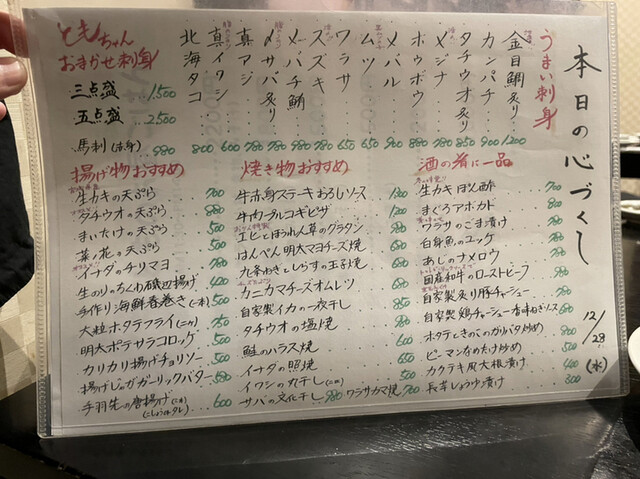 本日の心づくし
12/28
(水)
うまい刺身
金目鯛炙り 1200
カンパチ 900
タチウオ炙り 880
メジナ 780
ホウボウ 780
メバル 780
ムツ 650
ワラサ 650
スズキ 780
メバチ鮪
〆サバ炙り 780
真アジ 780
真イワシ 600
北海タコ 800
ともちゃん
おまかせ刺身
三点盛 1,500
五点盛 2,500
馬刺(赤身) 980
揚げ物おすすめ
生カキの天ぷら 700
タチウオの天ぷら 880
まいたけの天ぷら 500
菜ノ花の天ぷら 500
イナダのチリマヨ 780
生のりのちくわ磯辺揚げ 400
手作り海鮮春巻き(一本) 500
大粒ホタテフライ(二ヶ) 750
明太ポテサラコロッケ 500
カリカリ揚げチョリソー 500
揚げじゃがガーリックバター 580
手羽先の唐揚げ(二本) 600
(こしょう or タレ)
焼き物おすすめ
牛赤身ステーキおろしソース 1300
牛肉プルコギピザ
エビとほうれん草のグラタン 980
はんぺん明太マヨチーズ焼
九条ねぎとしらすの玉子焼 680
カニカマチーズオムレツ
自家製イカの一夜干し 850
タチウオの塩焼
鮭のハラス焼
イナダの照焼
イワシの丸干し(二本)
サバの文化干し 980
ワラサカマ焼 780
酒の肴に一品
生カキ ぽん酢 700
まぐろアボカド 800
ワラサのごま漬け
白身魚のユッケ
あじのナメロウ
国産和牛のローストビーフ
自家製炙り豚チャーシュー
自家製鶏チャーシュー香味ねぎソース
ホタテときのこのガリバタ炒め 800
ピーマンなめたけ炒め 500
カクテキ風大根漬け 400
長芋しょうゆ漬け 300